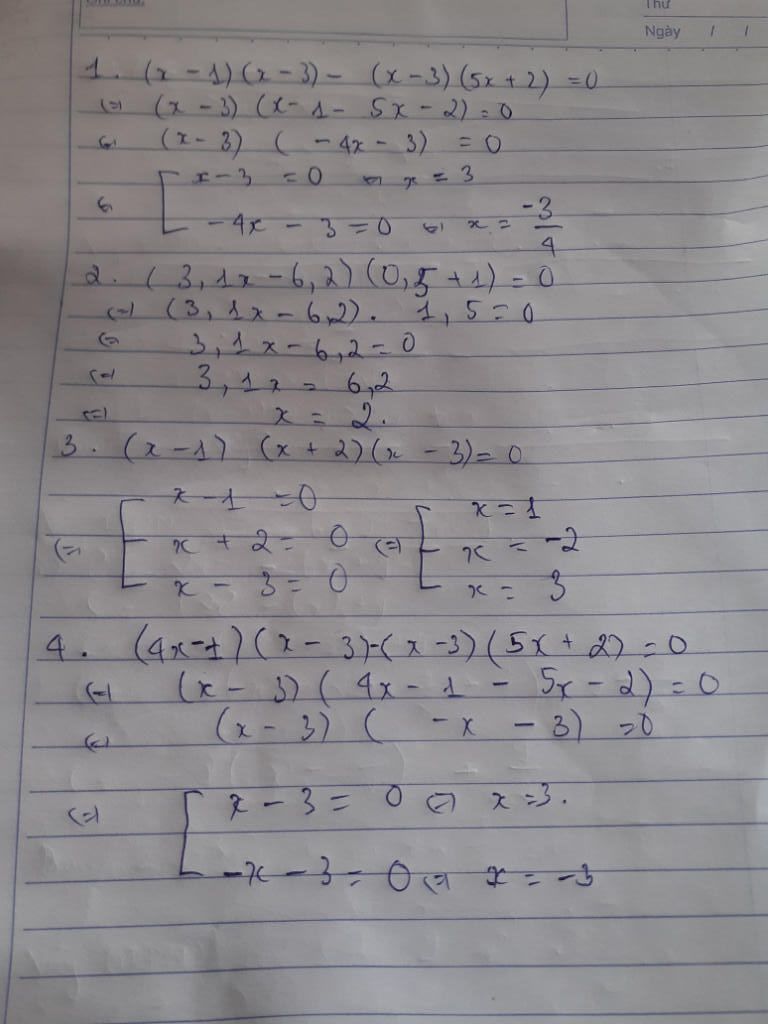 Thứ
Ngày / /
1. (x - 1)(x - 3) - (x - 3)(5x + 2) = 0
(=) (x - 3) (x - 1 - 5x - 2) = 0
(=) (x - 3) ( - 4x - 3) = 0
(=) [ x - 3 = 0 (=) x = 3
- 4x - 3 = 0 (=) x = -3/4
2. ( 3,1x - 6,2)(0,5 + 1) = 0
(=) (3,1x - 6,2). 1,5 = 0
(=) 3,1x - 6,2 = 0
(=) 3,1x = 6,2
(=) x = 2.
3. (x - 1) (x + 2)(x - 3) = 0
(=) [ x - 1 = 0 (=) [ x = 1
x + 2 = 0 x = -2
x - 3 = 0 x = 3
4. (4x - 1)(x - 3) - (x - 3)(5x + 2) = 0
(=) (x - 3) ( 4x - 1 - 5x - 2) = 0
(=) (x - 3) ( - x - 3) = 0
(=) [ x - 3 = 0 (=) x = 3.
-x - 3 = 0 (=) x = -3